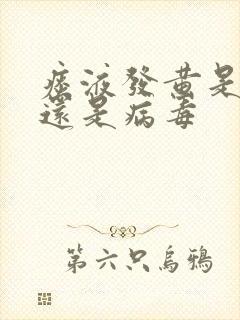 痰液發黃是
還是病毒
第六只烏鴉